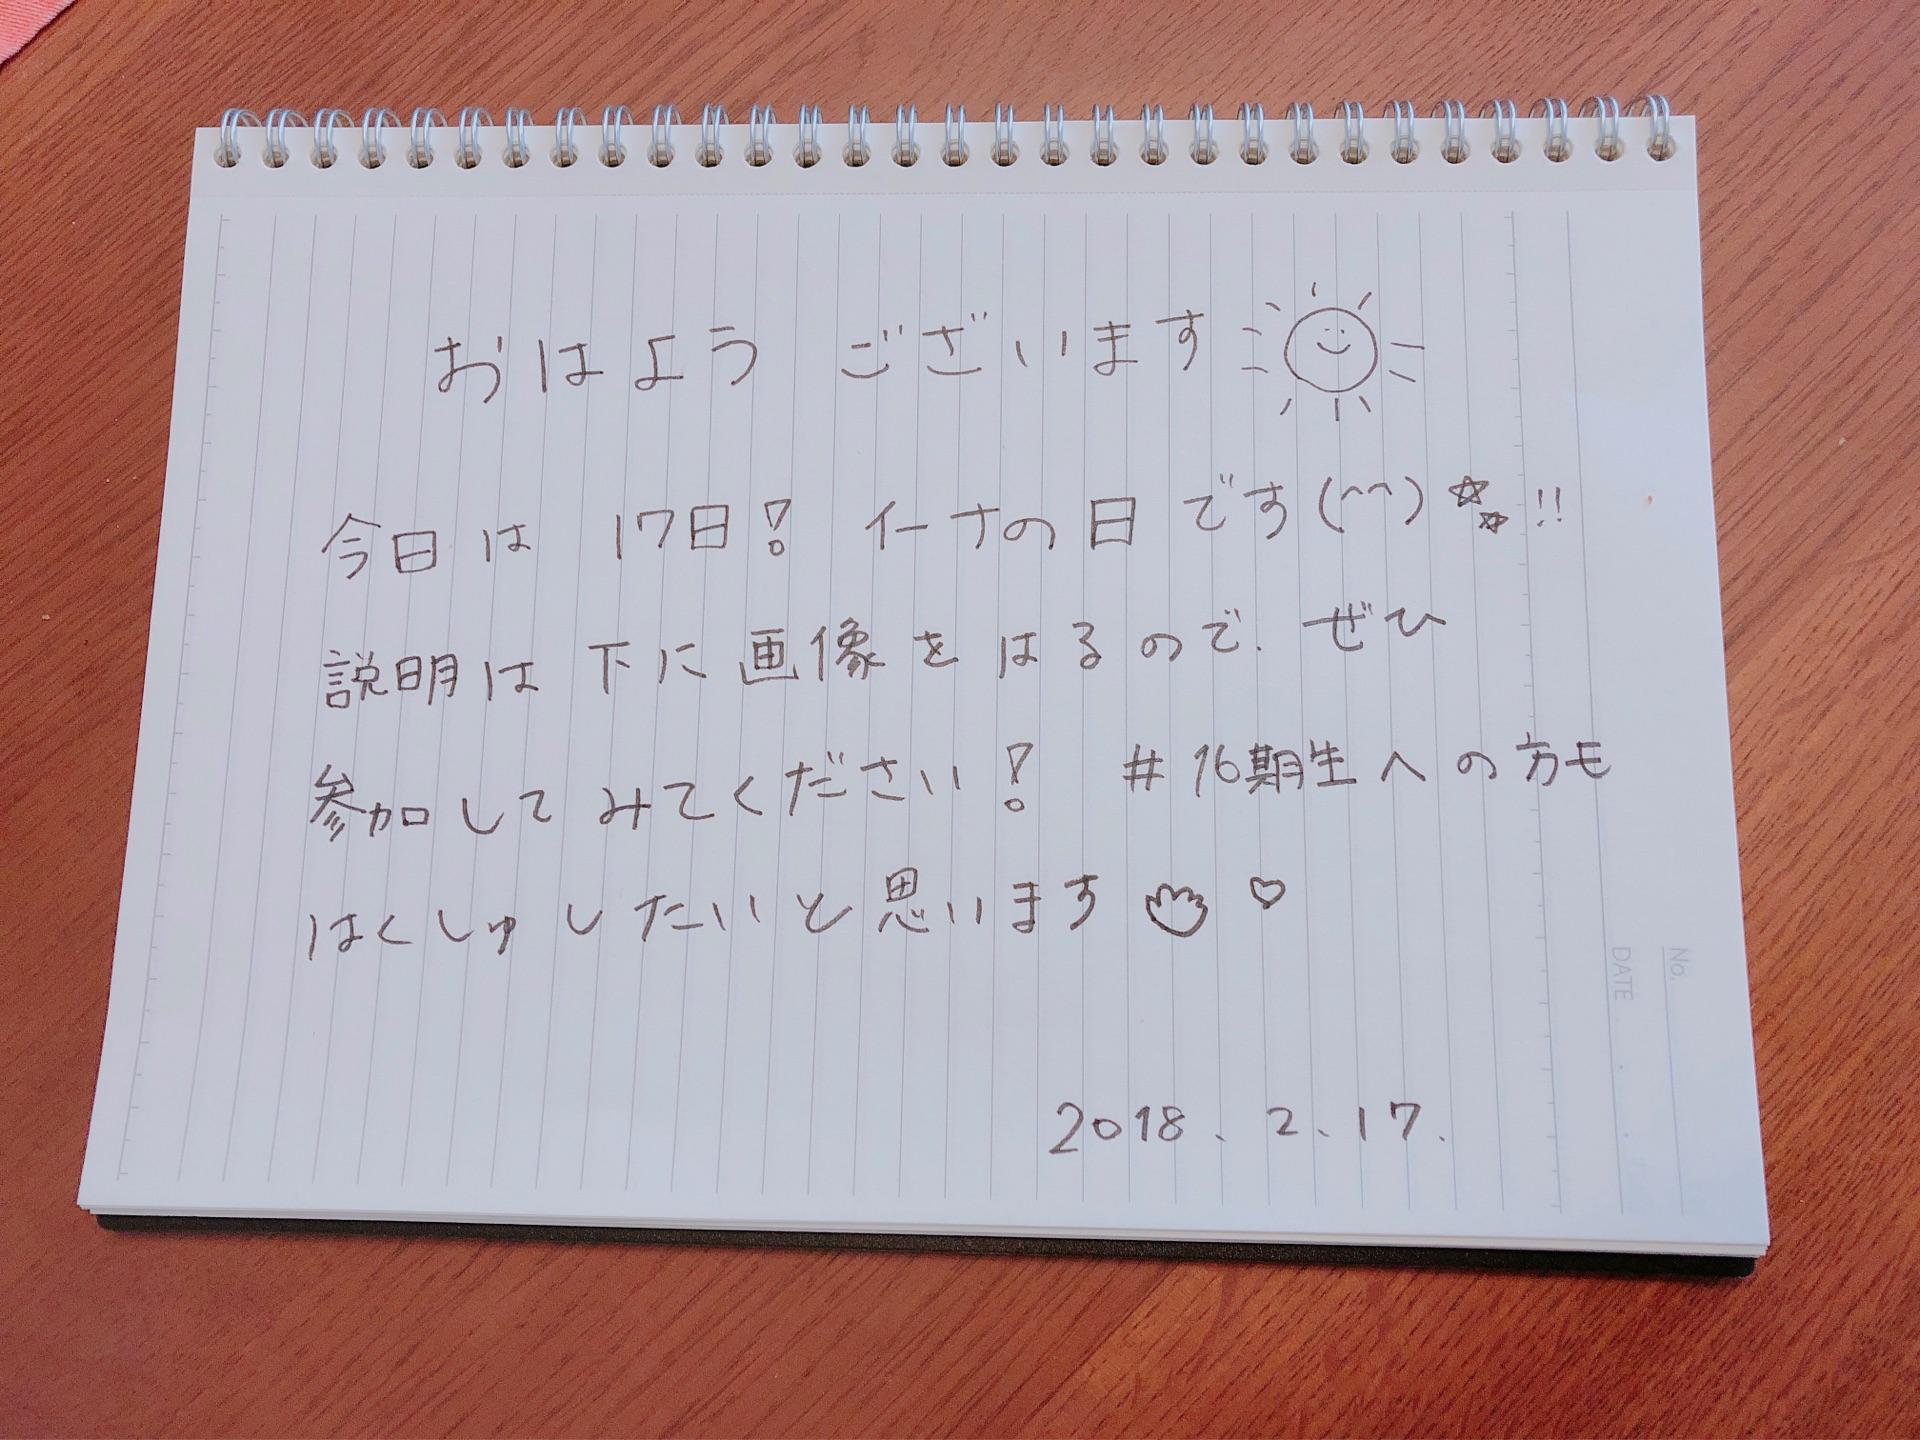 おはようございます
今日は 17日! イーナの日です(^^)☆☆!!
説明は下に画像をはるので、ぜひ
参加してみてください! #16期生への方も
はくしゅしたいと思います♡
2018.2.17.
No.
DATE